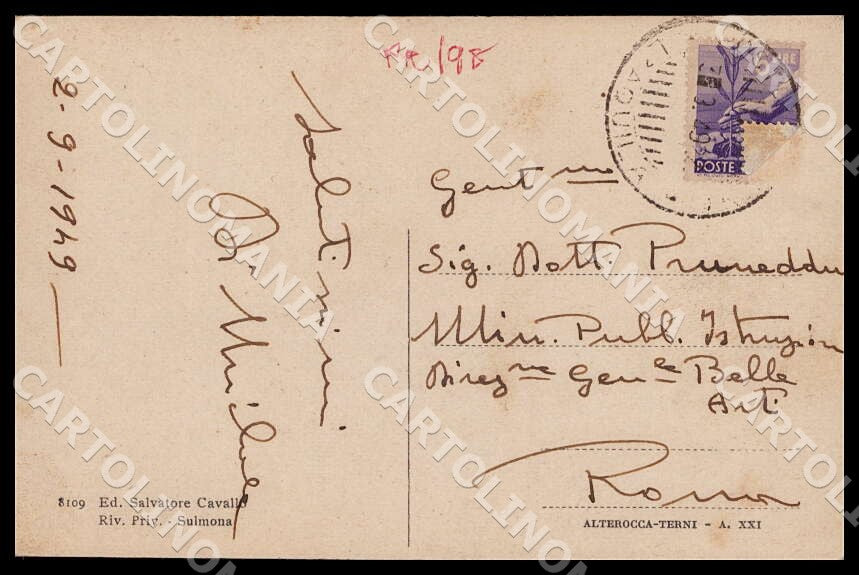 FR/98
2-9-1949
Saluti vivi
Gent mo
Sig. Dott. Pruneddu
Min. Pubbl. Istruzione
Direz ne Gen le Belle
Arti
Roma
POSTE
8109 Ed. Salvatore Cavallo
Riv. Priv. - Sulmona
ALTEROCCA-TERNI - A. XXI
CARTOLINOMANIA